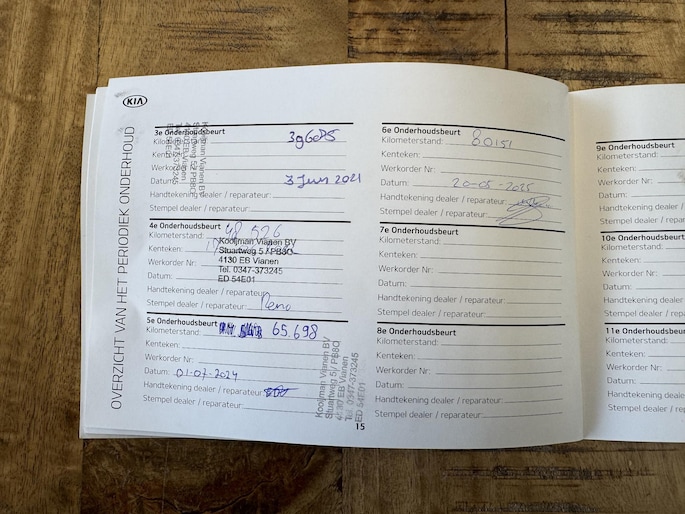 KIA
OVERZICHT VAN HET PERIODIEK ONDERHOUD
3e Onderhoudsbeurt
Kilometerstand:
Kenteken:
Werkorder Nr:
Datum: 3 Juni 2021
Handtekening dealer / reparateur:
Stempel dealer / reparateur:
Kooijman Vianen BV
Stuartweg 5 / PB80
4130 EB Vianen
Tel. 0347-373245
ED 54E01
4e Onderhoudsbeurt
Kilometerstand: 48 526
Kenteken:
Werkorder Nr:
Datum:
Handtekening dealer / reparateur:
Stempel dealer / reparateur:
Kooijman Vianen BV
Stuartweg 5 / PB80
4130 EB Vianen
Tel. 0347-373245
ED 54E01
5e Onderhoudsbeurt
Kilometerstand: 65.698
Kenteken:
Werkorder Nr:
Datum: 01-07-2024
Handtekening dealer / reparateur:
Stempel dealer / reparateur:
Kooijman Vianen BV
Stuartweg 5 / PB80
4130 EB Vianen
Tel. 0347-373245
ED 54E01
15
6e Onderhoudsbeurt
Kilometerstand: 80151
Kenteken:
Werkorder Nr:
Datum: 20-05-2025
Handtekening dealer / reparateur:
Stempel dealer / reparateur:
7e Onderhoudsbeurt
Kilometerstand:
Kenteken:
Werkorder Nr:
Datum:
Handtekening dealer / reparateur:
Stempel dealer / reparateur:
8e Onderhoudsbeurt
Kilometerstand:
Kenteken:
Werkorder Nr:
Datum:
Handtekening dealer / reparateur:
Stempel dealer / reparateur:
9e Onderhoudsbeurt
Kilometerstand:
Kenteken:
Werkorder Nr:
Datum:
Handtekening dealer
Stempel dealer / rep
10e Onderhoudsbeurt
Kilometerstand:
Kenteken:
Werkorder Nr:
Datum:
Handtekening dealer
Stempel dealer / rep
11e Onderhoudsbeurt
Kilometerstand:
Kenteken:
Werkorder Nr:
Datum:
Handtekening deale
Stempel dealer / re